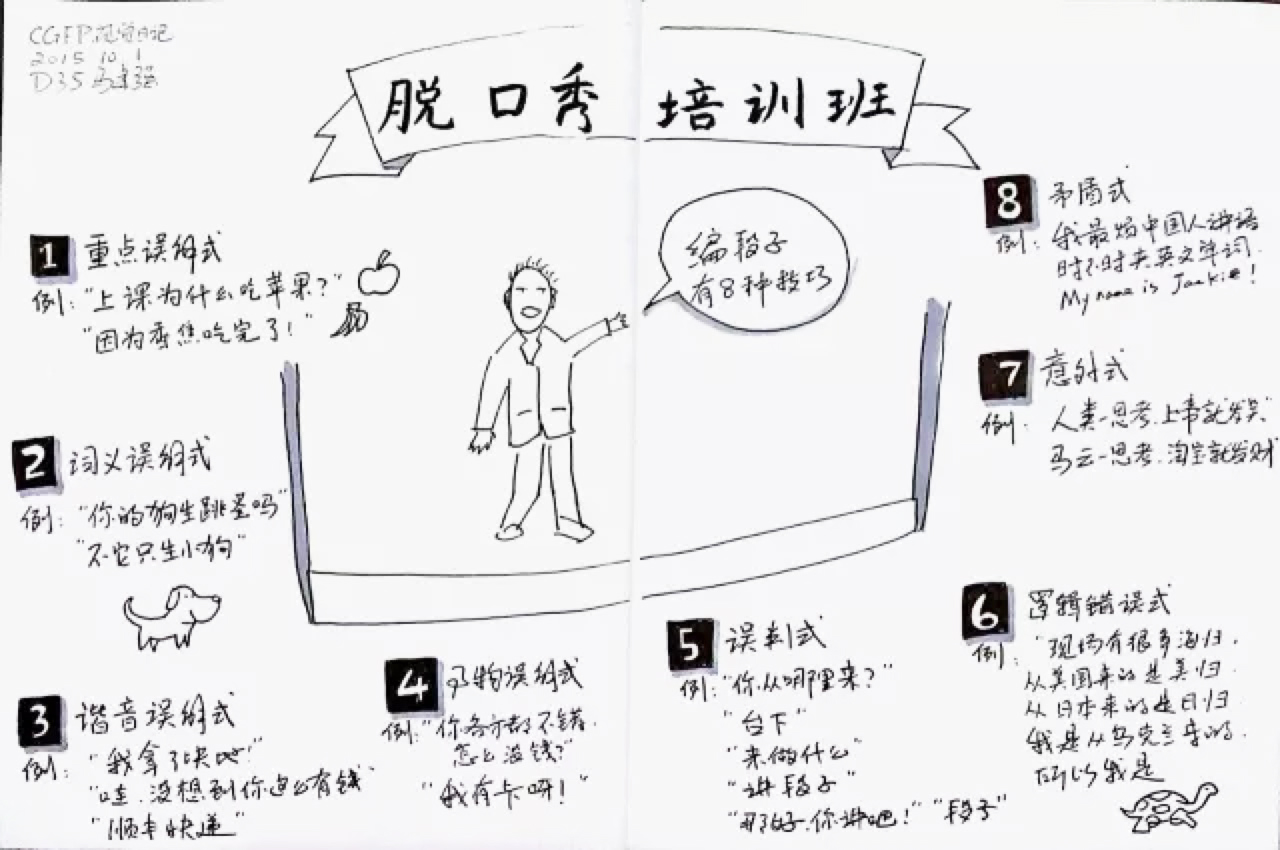 CGFP视觉日记
2015 10. 1
D35
脱口秀培训班
编段子
有8种技巧
1 重点误解式
例: "上课为什么吃苹果?"
"因为香焦吃完了!"
2 词义误解式
例: "你的狗生跳蚤吗"
"不它只生小狗"
3 谐音误解式
例: "我拿了快吧!"
"哇.没想到你这么有钱"
"顺丰快递"
4 物误解式
例: "你各方都不错.
怎么没钱?"
"我有卡呀!"
5 误判式
例: "你从哪里来?"
"台下"
"来做什么"
"讲段子"
"那好.你讲吧!" "段子"
6 逻辑错误式
例: "现场有很多海归.
从美国来的是美归.
从日本来的是日归.
我是从乌克兰来的.
所以我是
7 意外式
例. 人类一思考.上帝就发笑
马云一思考.淘宝就发财
8 矛盾式
例: 我最烦中国人讲话
时不时夹英文单词.
My name is Jackie!